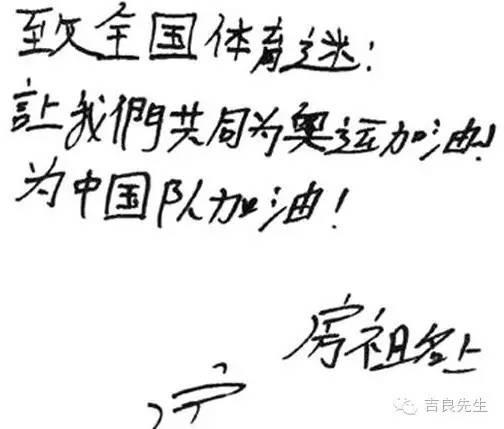 致全国体育迷！
讓我們共同为奥运加油！
为中国队加油！
房祖名上
吉良先生